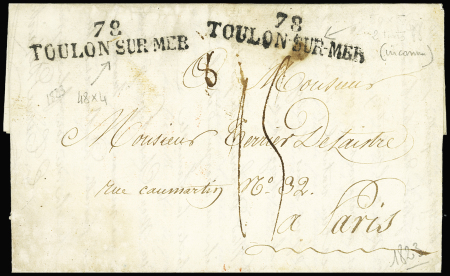 78
TOULON SUR-MER
78
TOULON SUR-MER
(inconnu)
48x4
8
A Monsieur
15
Monsieur Delaistre
rue caumartin N° 32.
a Paris
1823